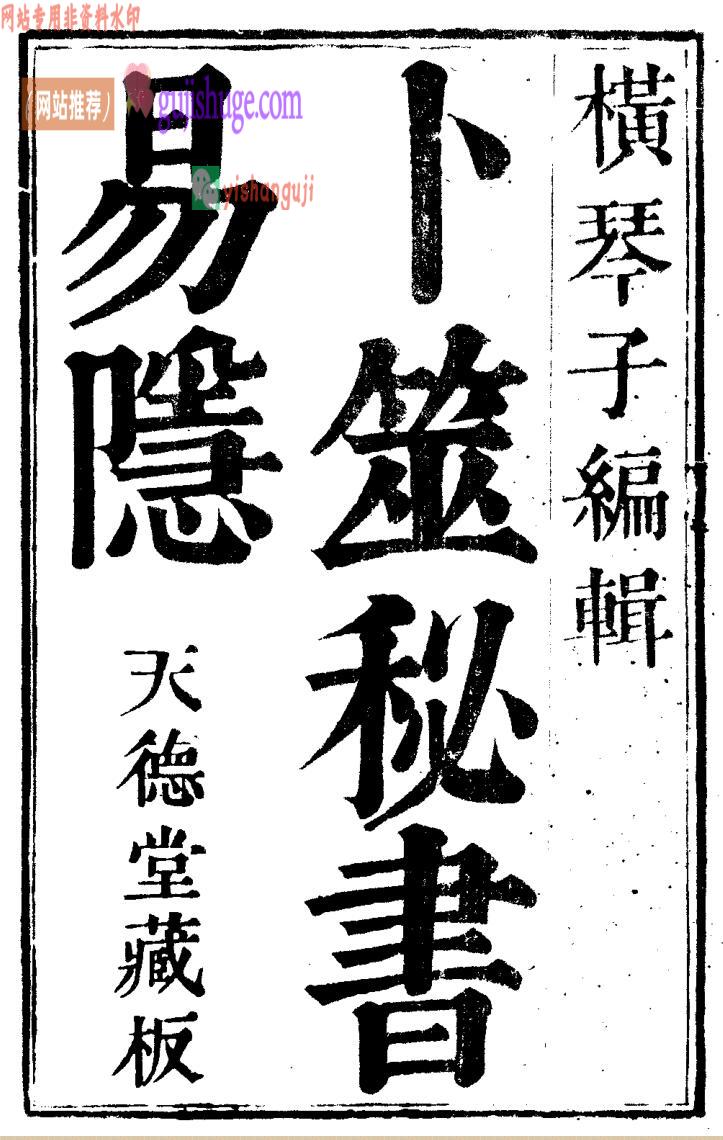 网站专用非资料水印
(网站推荐)
gujishuge.com
yishanguji
橫琴子編輯
卜筮秘書
易隱
天德堂藏板